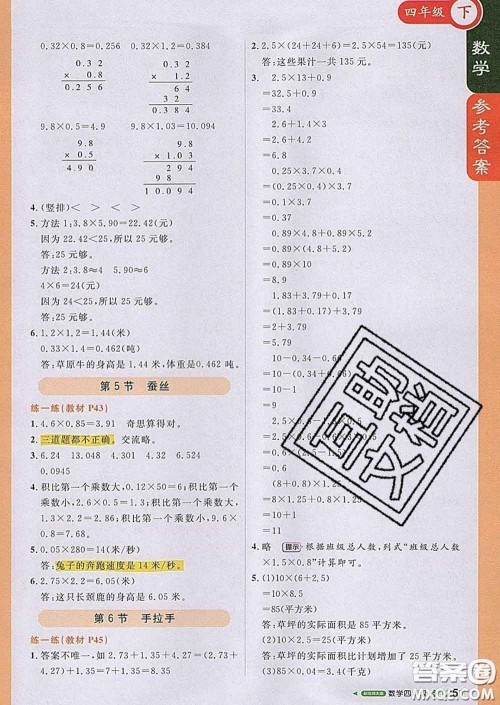 四年级 下
数学
参考答案
0.32×0.8=0.256 0.32×1.2=0.384
0.32 0.32
× 0.8 × 1.2
0.256 64
32
0.384
9.8×0.5=4.9 9.8×1.03=10.094
9.8 9.8
× 0.5 × 1.03
4.90 294
98
10.094
4.(竖排)< > < >
5.方法1:3.8×5.90=22.42(元)
因为22.42<25,所以25元够。
答:25元够。
方法2:3.8≈4 5.90≈6
4×6=24(元)
因为24<25,所以25元够。
答:25元够。
6.1.2×1.2=1.44(米)
0.33×1.4=0.462(吨)
答:草原牛的身高是1.44米,体重是0.462吨。
第5节 蚕丝
练一练(教材P43)
1.4.6×0.85=3.91 奇思算得对。
2.三道题都不正确。交流略。
3.6.24 13.048 4.301 4.32 6.532
0.0945
4.积比第一个乘数大,0.12×50=6;积比第一个
乘数小,2.6×0.5=1.3;积比第一个乘数大,
2.6×1.5=3.9;积比第一个乘数小,
5.0.05×280=14(米/秒)
答:兔子的奔跑速度是14米/秒。
6.2.75×2.2=6.05(米)
答:这只长颈鹿的身高是6.05米。
第6节 手拉手
练一练(教材P45)
1.答案不唯一,如2.73+1.35+4.27=2.73+4.27
+1.35=7+1.35=8.35
2.2.5×(24+24+6)=2.5×54=135(元)
答:这些果汁一共135元。
3. 2.5×13+0.9
=32.5+0.9
=33.4
2.6+1.4×3
=2.6+4.2
=6.8
0.25×3.7×0.4
=0.25×0.4×3.7
=0.1×3.7
=0.37
0.89×4.8+0.89×5.2
=0.89×(4.8+5.2)
=0.89×10
=8.9
1.83+3.79+0.17
=1.83+0.17+3.79
=2+3.79
=5.79
10-0.34-0.66
=10-(0.34+0.66)
=10-1
=9
1.2×2.5+0.8×2.5
=2.5×(1.2+0.8)
=2.5×2
=5
12×(0.6+0.4)-1
=12×1-1
=12-1
=11
4.略 提示 根据班级总人数,列式“班级总人数
×1.5”计算即可。
=10×8.5
=85(平方米)
答:草坪的实际面积是85平方米。
答:草坪的实际面积比计划增加了25平方米。
(3)85×0.04=3.4(千克)
全品文档
答案圈